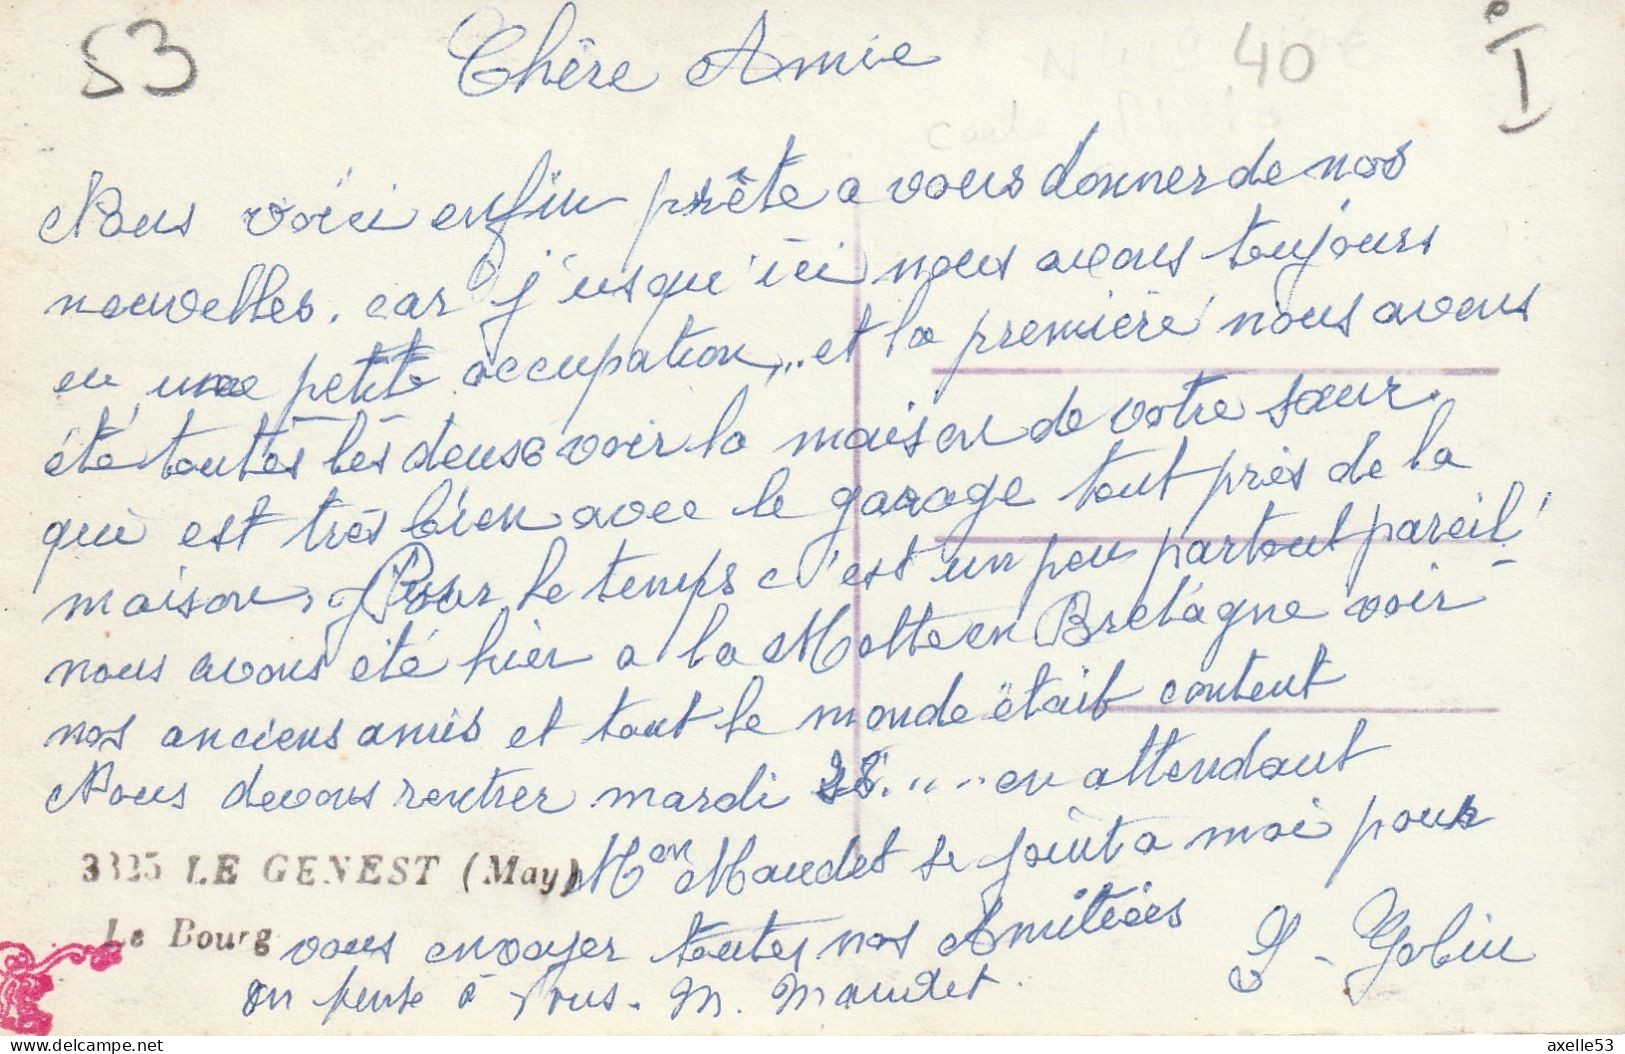 53
40
I
Chère Amie
Nous voici enfin prête a vous donner de nos
nouvelles. car j'usqu'ici nous avons toujours
eu une petite occupation,... et la première nous avons
été toutes les deux voir la maison de votre sœur.
qui est très bien avec le garage tout près de la
maison, Pour le temps c'est un peu partout pareil
nous avons été hier a la Motte en Bretagne voir
nos anciens amis et tout le monde était content
Nous devons rentrer mardi 28..... en attendant
3325 LE GENEST (May) Men Maudet se joint a moi pour
Le Bourg vous envoyer toutes nos Amitiées
on pense à vous. M. Maudet. Gobin
delcampe.net
axelle53